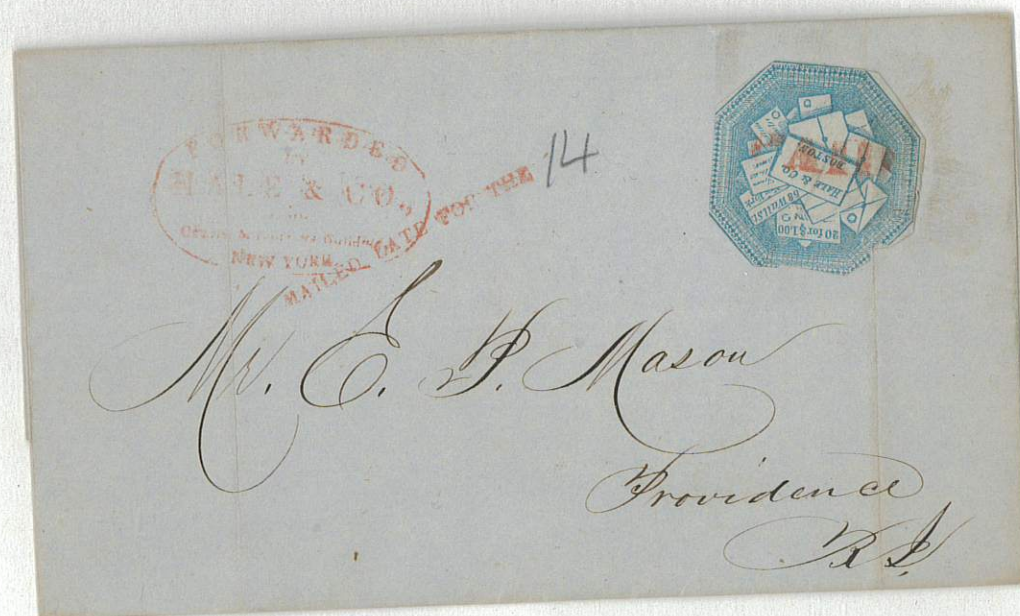 FORWARDED
by
HALE & CO.
NEW YORK
MAILED LATE FOR THE 14
HALE & CO.
BOSTON
68 Wall St.
20 for $1.00
Mr. E. P. Mason
Providence
R I.